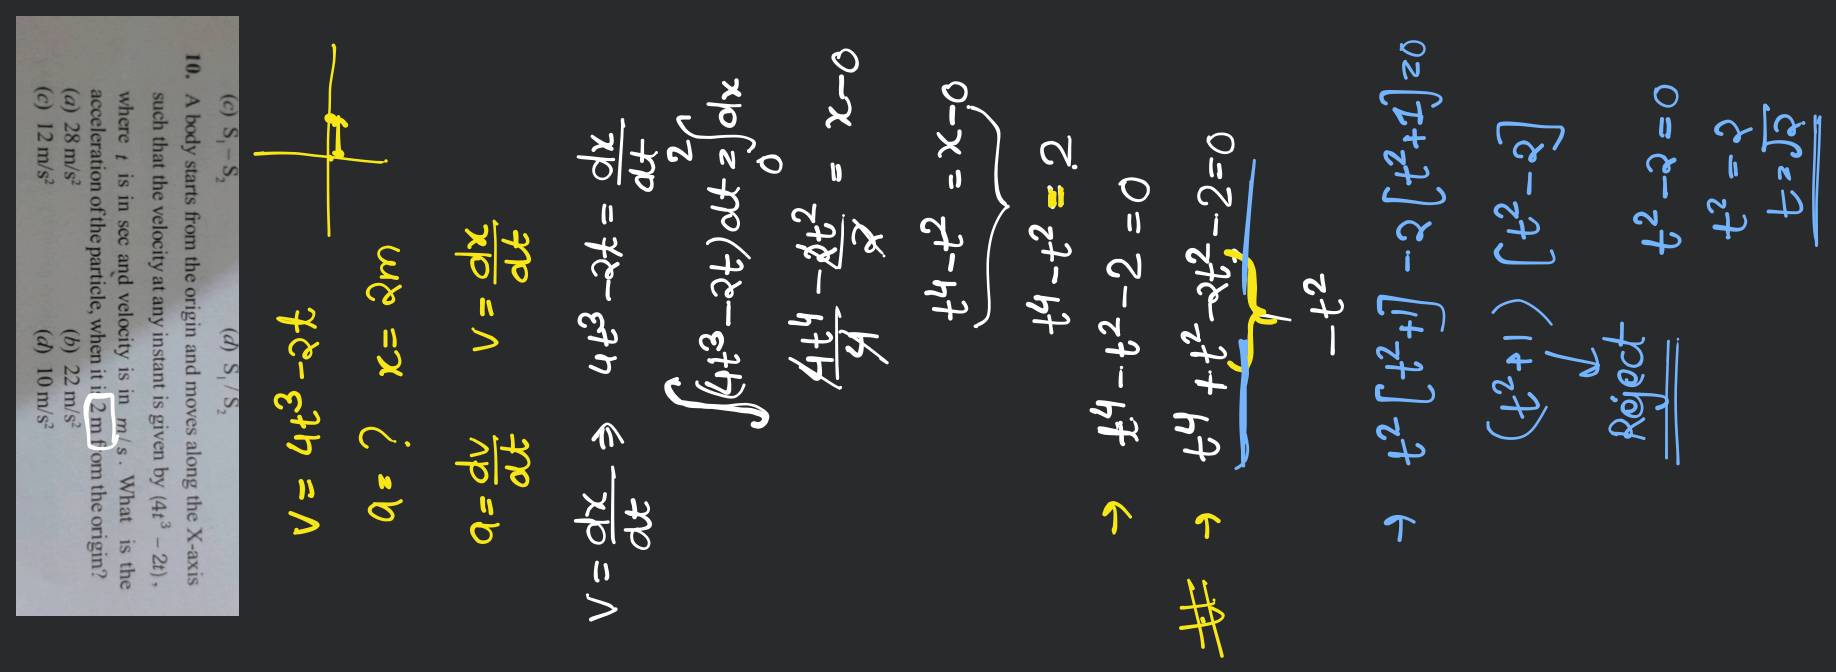 (c) S₁ – S₂ (d) S₁ / S₂
10. A body starts from the origin and moves along the X-axis
such that the velocity at any instant is given by (4t³ – 2t),
where t is in sec and velocity is in m/s. What is the
acceleration of the particle, when it is 2 m from the origin?
(a) 28 m/s² (b) 22 m/s²
(c) 12 m/s² (d) 10 m/s²
v = 4t³ - 2t
a = ? x = 2m
a = dv/dt v = dx/dt
v = dx/dt ⇒ 4t³ - 2t = dx/dt
∫(4t³ - 2t) dt = ∫₀² dx
4t⁴/4 - 2t²/2 = x - 0
t⁴ - t² = x - 0
t⁴ - t² = 2
→ t⁴ - t² - 2 = 0
# → t⁴ + t² - 2t² - 2 = 0
- t²
→ t² [t² + 1] - 2 [t² + 1] = 0
(t² + 1) [t² - 2]
Reject t² - 2 = 0
t² = 2
t = √2